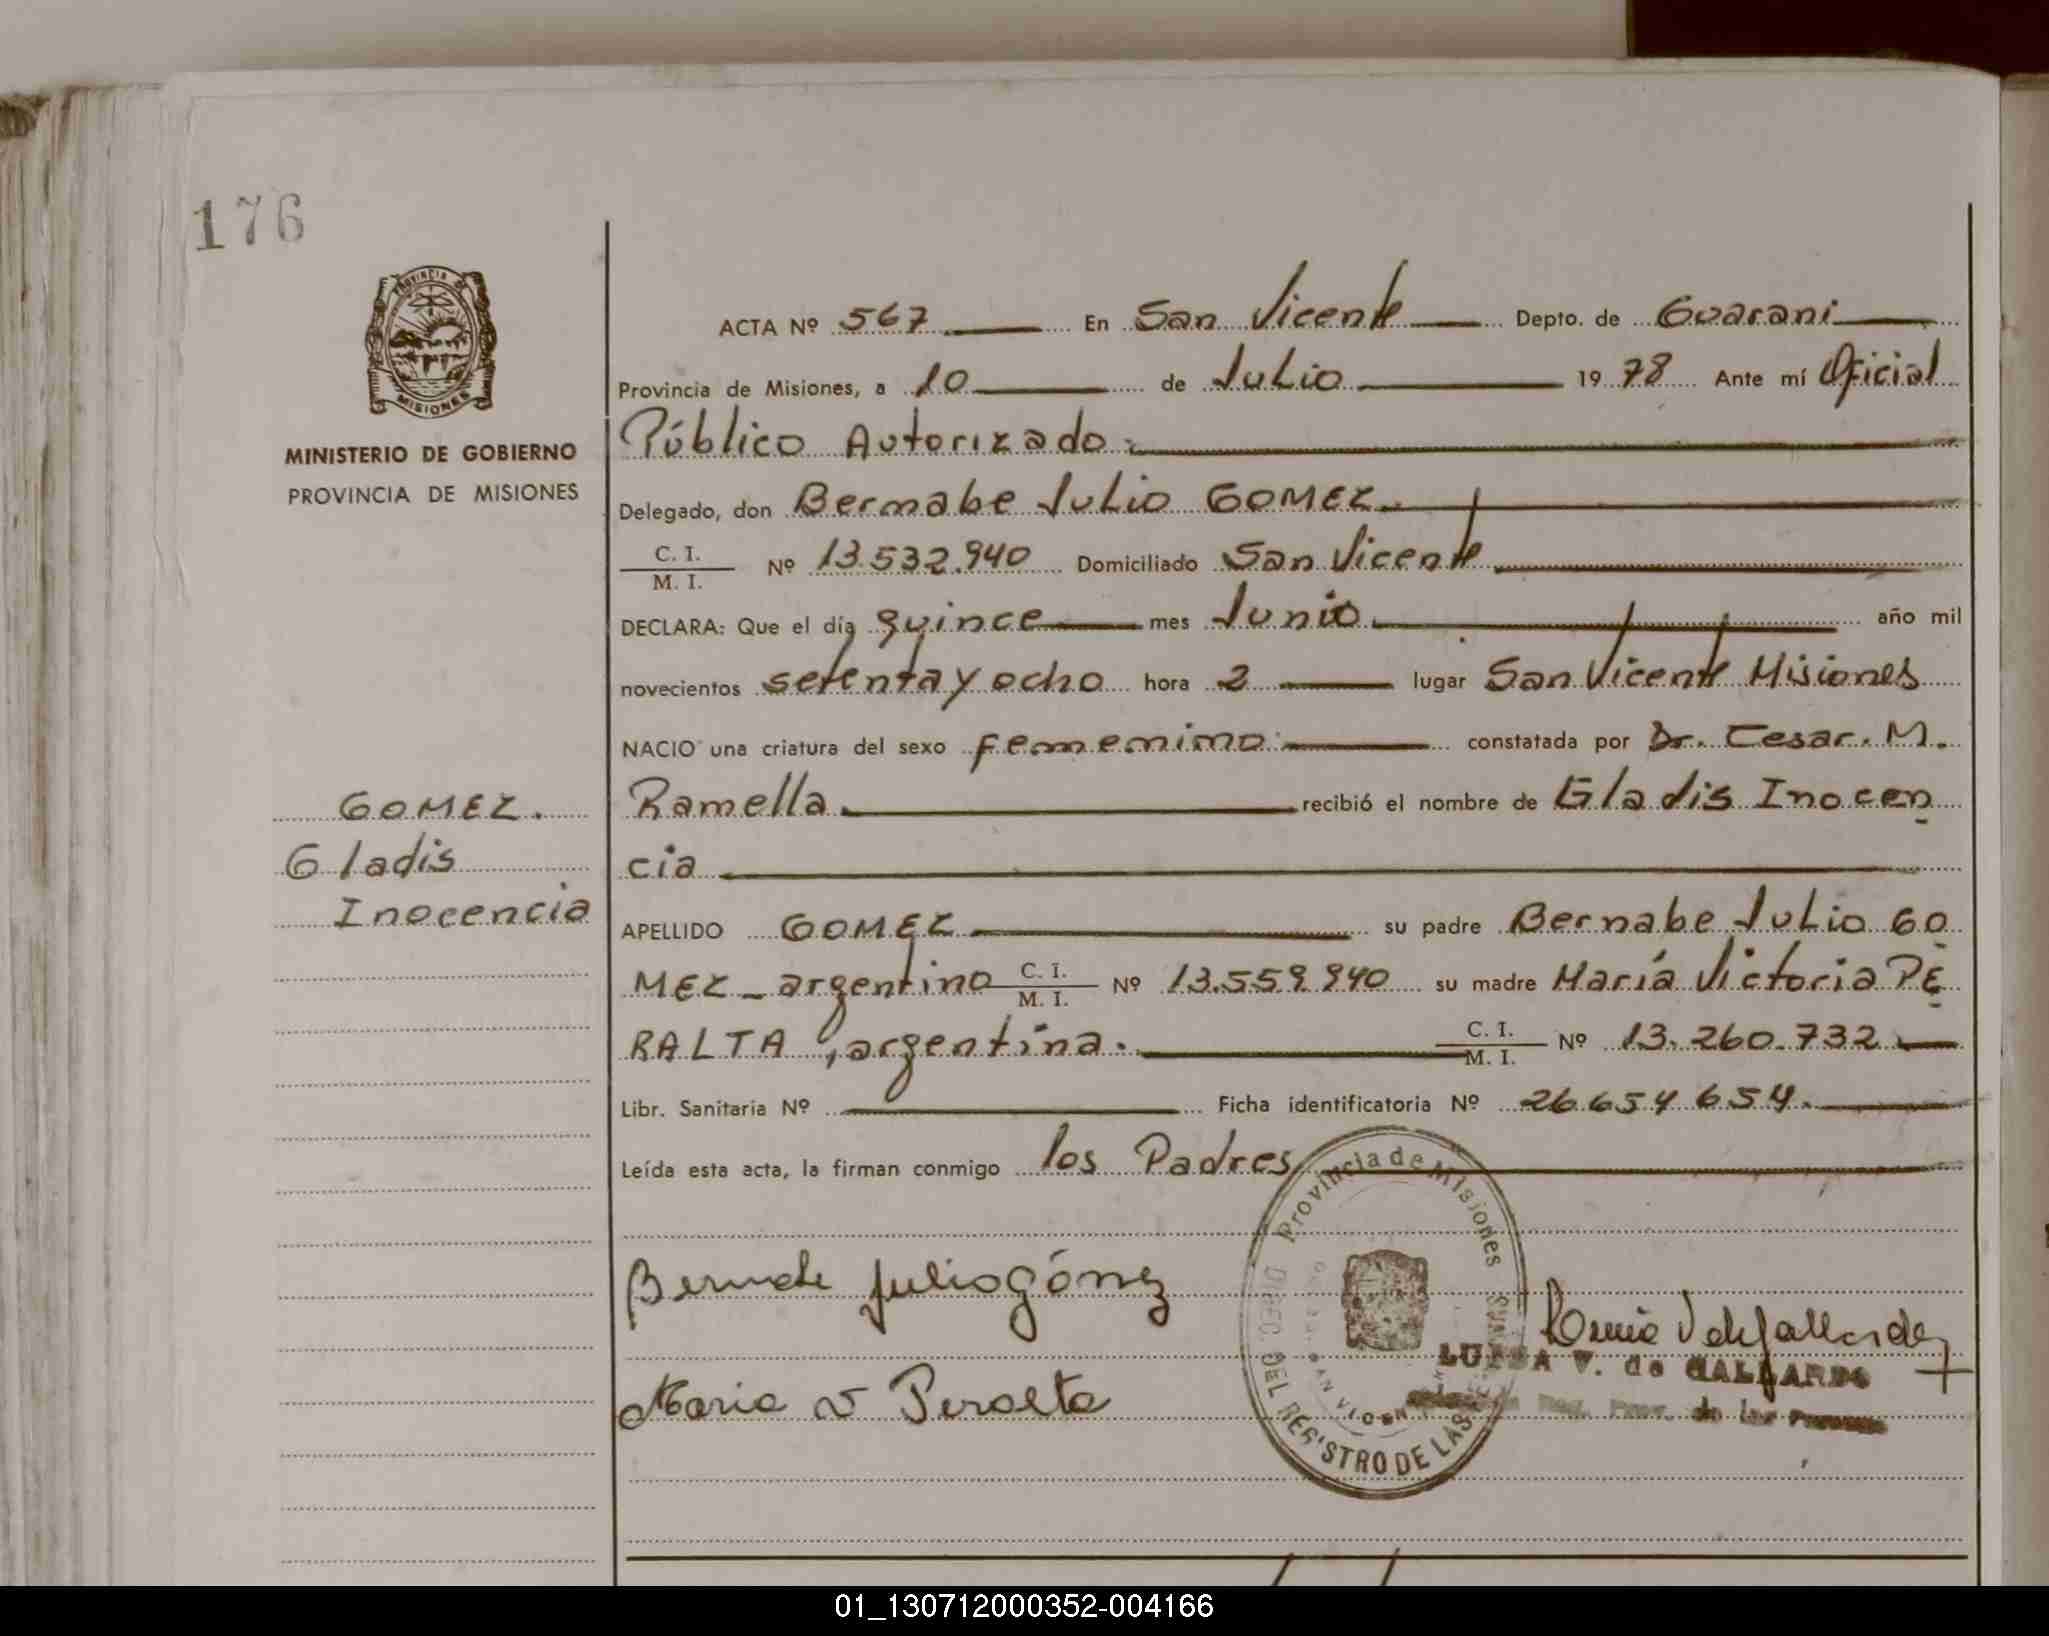 176
PROVINCIA DE
MISIONES
MINISTERIO DE GOBIERNO
PROVINCIA DE MISIONES
GOMEZ.
Gladis
Inocencia
ACTA Nº 567 En San Vicente Depto. de Guarani
Provincia de Misiones, a 10 de Julio 1978 Ante mí Oficial
Público Autorizado.
Delegado, don Bernabe Julio GOMEZ.
C. I.
M. I. Nº 13.532.940 Domiciliado San Vicente
DECLARA: Que el día quince mes Junio año mil
novecientos setenta y ocho hora 2 lugar San Vicente Misiones
NACIO una criatura del sexo femenino constatada por Dr. Cesar. M.
Ramella recibió el nombre de Gladis Inocen
cia
APELLIDO GOMEZ su padre Bernabe Julio GO
MEZ_ argentino C. I.
M. I. Nº 13.559.940 su madre María Victoria PE
RALTA, argentina. C. I.
M. I. Nº 13.260.732
Libr. Sanitaria Nº Ficha identificatoria Nº 26.654 654.
Leída esta acta, la firman conmigo los Padres
Provincia de Misiones
DIREC. DEL REGISTRO DE LAS
Julio Gómez
Maria V Peralta
LUISA V. de GALLARDO
01_130712000352-004166